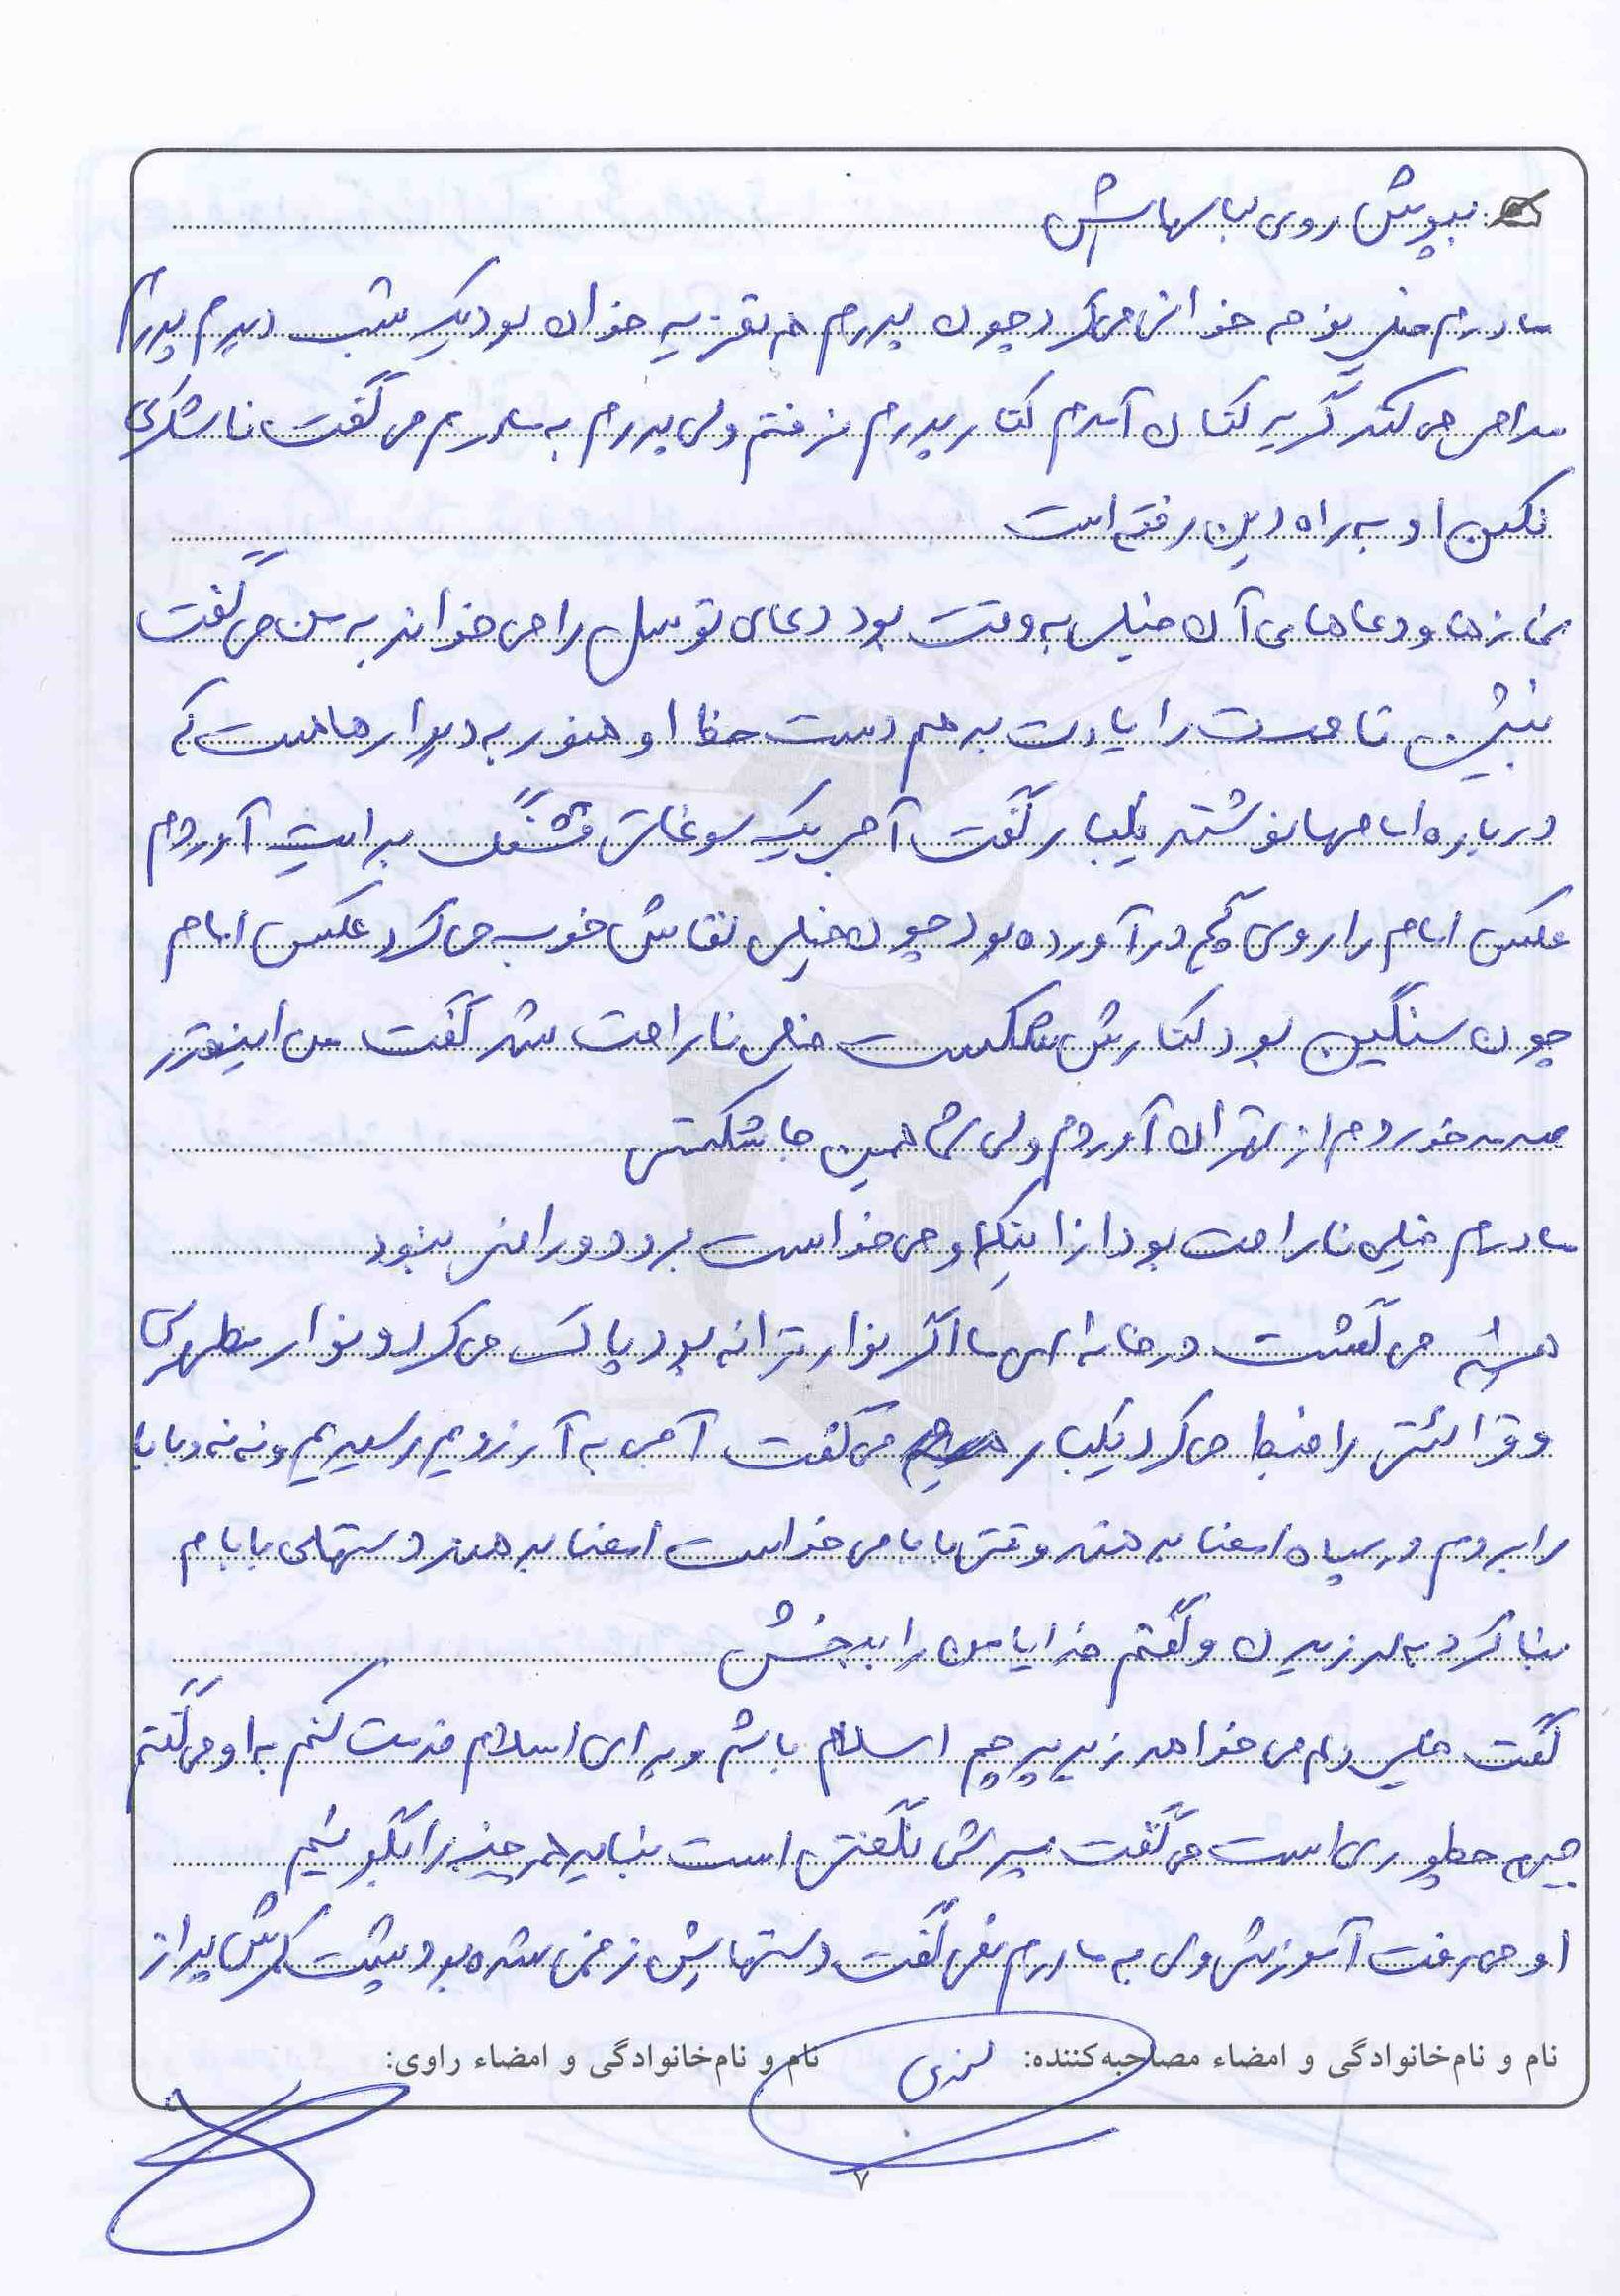 بپوش روی لباسهایش
مادرم خیلی نوحه خوانی می‌کرد چون پدرم هم تعزیه خوان بود یک شب دیدم پدرم
مداحی می کند گریه کنان آمدم کنار پدرم نرفتم ولی پدرم به مادرم می گفت ناشکری
نکن او به راه دین رفته است
نمازها و دعاهای آن خیلی به وقت بود دعای توسل را می خواند به من می گفت
بنشین تا درست را یادت بدهم دست خط او هنوز به دیوارها هست که
درباره امامها نوشته یکبار گفت آجی یک سوغاتی قشنگ برایت آوردم
عکس امام را روی گچ درآورده بود چون خیلی نقاشی خوب می کرد عکس امام
چون سنگین بود کنارش شکست خیلی ناراحت شد گفت من اینقدر
صدمه خوردم از تهران آوردم ولی شما همین جا شکستی
مادرم خیلی ناراحت بود از اینکه او می خواست برود و راضی نبود
همیشه می گشت در خانه ای ما اگر نوار ترانه بود پاک می کرد و نوار مطهری
و قرائتی را ضبط می کرد یکبار می گفت آجی به آرزویم رسیدیم و ننه و بابا
را بردم در سپاه امضا بدهند وقتی بابا می خواست امضا بدهد دستهای بابام
بنا کرد به لرزیدن و گفتم خدایا من را ببخش
گفت خیلی دلم می خواهد زیر پرچم اسلام باشم و برای اسلام خدمت کنم به او می گفتم
جبهه چطوری است می گفت سرش نگفتنی است نباید هر چیز را بگوئیم
او می رفت آموزشی ولی به مادرم نمی گفت دستهایش زخمی شده بود پشت کمرش پر از
نام و نام‌خانوادگی و امضاء مصاحبه‌کننده: نام و نام‌خانوادگی و امضاء راوی:
۷